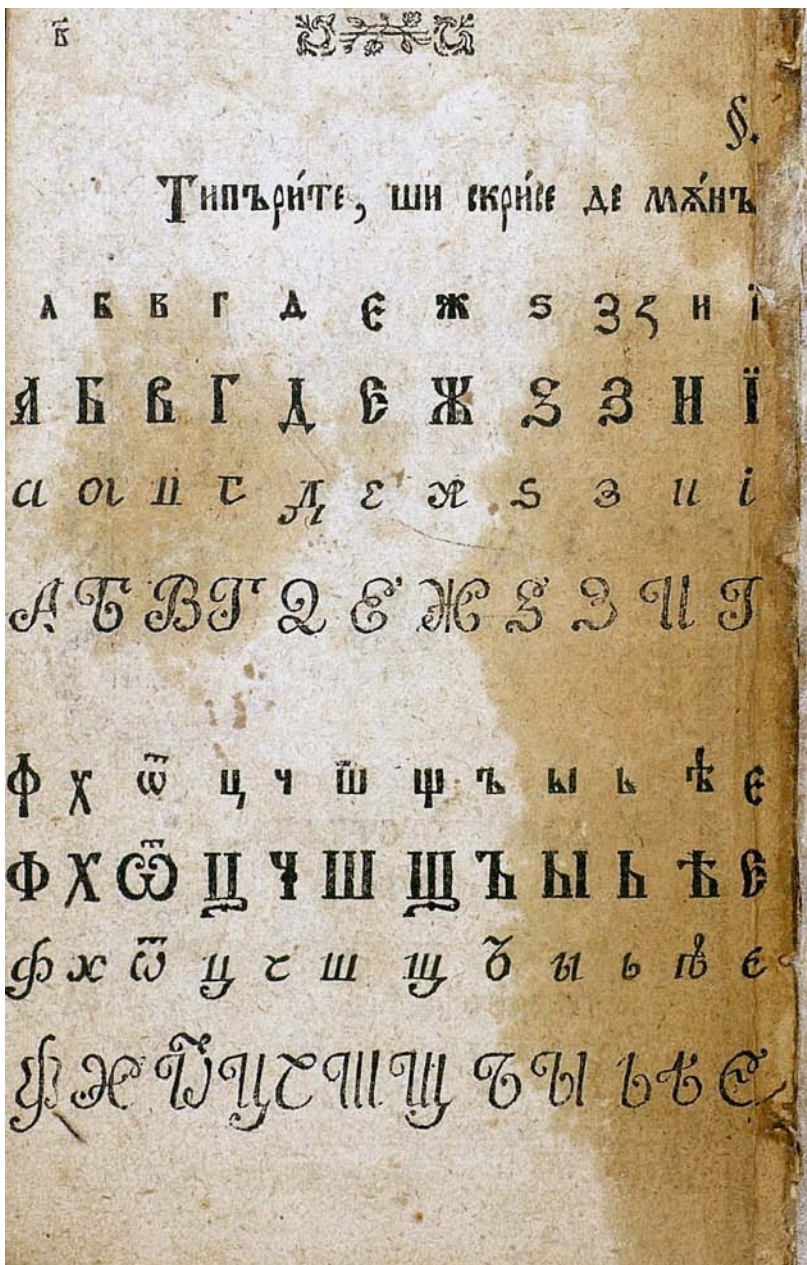 в҃
§.
Типъри́те, ши скри́се де мѫ́нъ
а б в г д є ж ѕ з ꙁ и ї
А Б В Г Д Є Ж Ѕ З И Ї
а б в г д е ж ѕ з и і
А Б В Г Д Е Ж Ѕ З И І
ф х ѿ ц ч ш щ ъ ы ь ѣ є
Ф Х Ѿ Ц Ч Ш Щ Ъ Ы Ь Ѣ Є
ф х ѿ ц ч ш щ ъ ы ь ѣ є
Ф Х Ѿ Ц Ч Ш Щ Ъ Ы Ь Ѣ Є